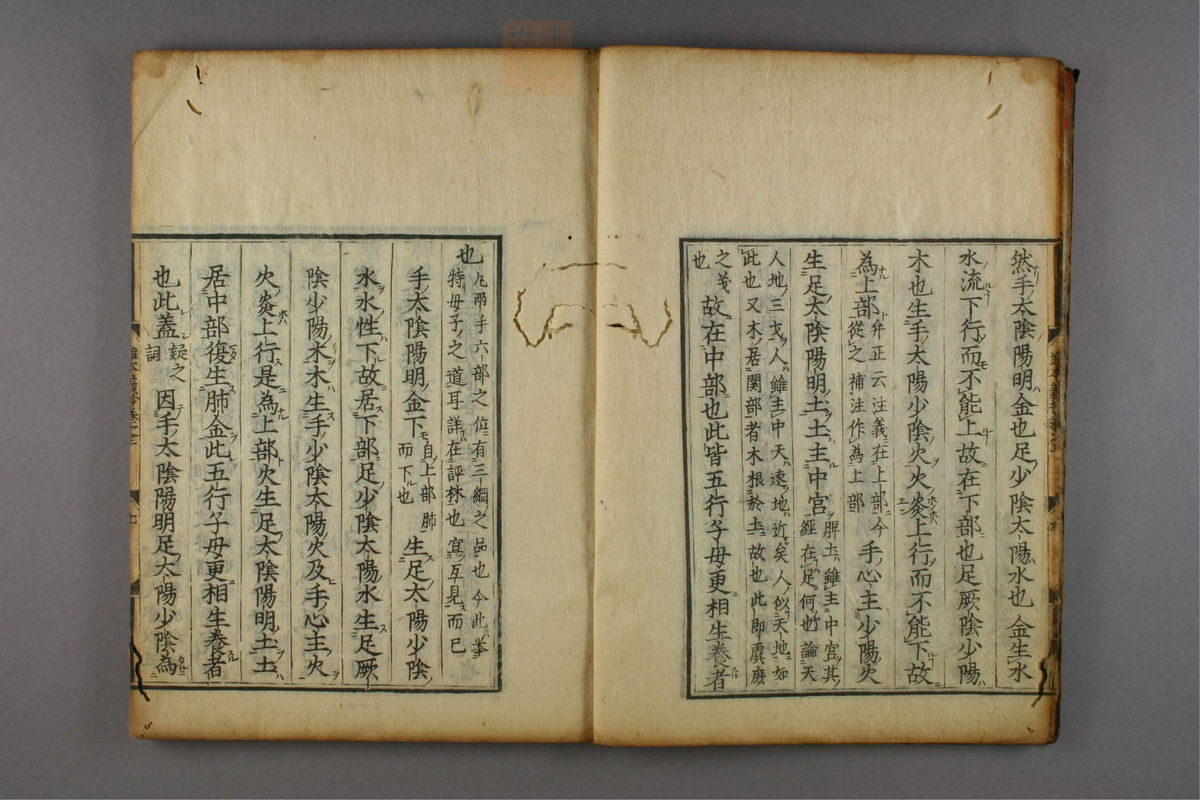 然手太陰陽明金也足少陰太陽水也金生水
水流下行而不能上故在下部也足厥陰少陽
木也生手太陽少陰火火炎上行而不能下故
為上部弁正云注義在上部今從之補注作為上部手心主少陽火
生足太陰陽明土土主中宮脾土雖主中宮其經在足何也論天
人地三才人雖主中天遠地近矣人似天地如
此也又木居関部者木根於土故也此即虞庶
之義也故在中部也此皆五行子母更相生養者
也凡兩手六部之位有三綱之品也今此挙
特母子之道耳詳在評林也宜互見而已
手太陰陽明金下自上部肺而下也生足太陽少陰
水水性下故居下部足少陰太陽水生足厥
陰少陽木木生手少陰太陽火及手心主火
火炎上行是為上部火生足太陰陽明土土
居中部復生肺金此五行子母更相生養者
也此蓋疑之詞因手太陰陽明足太陽少陰為